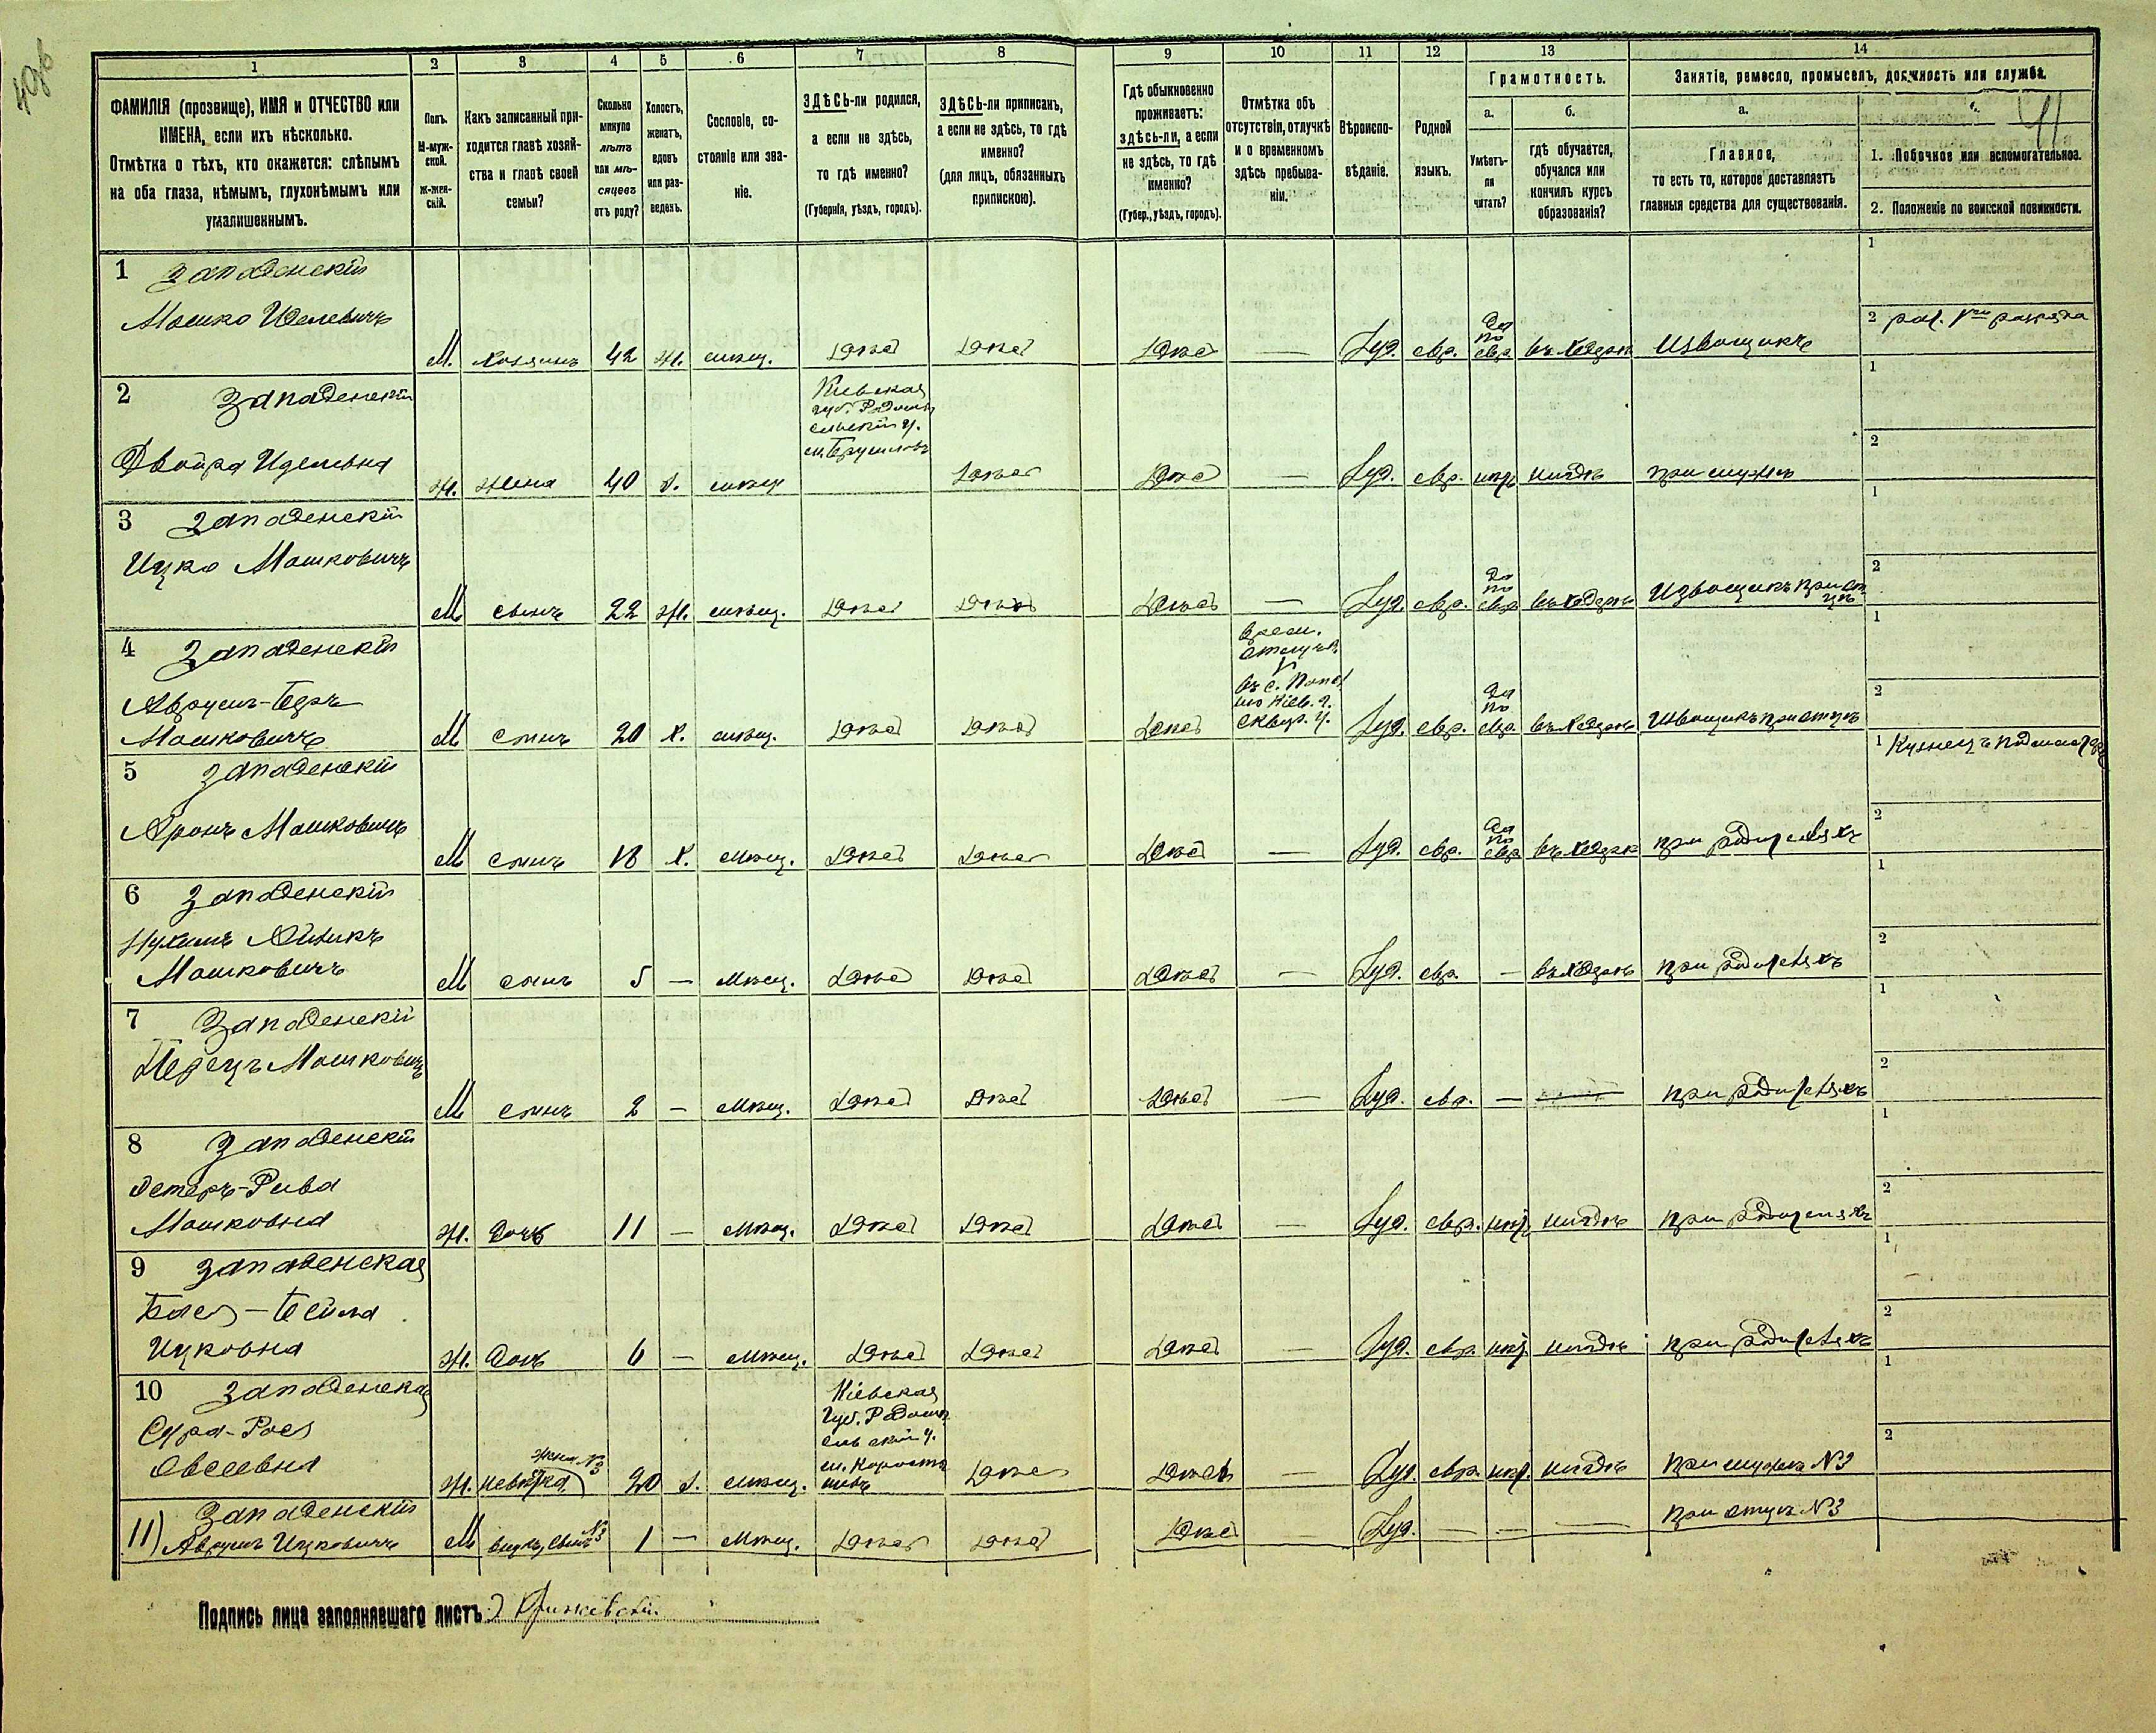 49об
1
2
3
4
5
6
7
8
9
10
11
12
13
14
ФАМИЛІЯ (прозвище), ИМЯ и ОТЧЕСТВО или
ИМЕНА, если ихъ нѣсколько.
Отмѣтка о тѣхъ, кто окажется: слѣпымъ
на оба глаза, нѣмымъ, глухонѣмымъ или
умалишеннымъ.
Полъ.
М-муж-
ской.
Ж-жен-
скій.
Какъ записанный при-
ходится главѣ хозяй-
ства и главѣ своей
семьи?
Сколько
минуло
лѣтъ
или мѣ-
сяцевъ
отъ роду?
Холостъ,
женатъ,
вдовъ
или раз-
веденъ.
Сословіе, со-
стояніе или зва-
ніе.
ЗДѢСЬ-ли родился,
а если не здѣсь,
то гдѣ именно?
(Губернія, уѣздъ, городъ).
ЗДѢСЬ-ли приписанъ,
а если не здѣсь, то гдѣ
именно?
(для лицъ, обязанныхъ
припискою).
Гдѣ обыкновенно
проживаетъ:
здѣсь-ли, а если
не здѣсь, то гдѣ
именно?
(Губер., уѣздъ, городъ).
Отмѣтка объ
отсутствіи, отлучкѣ
и о временномъ
здѣсь пребыва-
ніи.
Вѣроиспо-
вѣданіе.
Родной
языкъ.
Грамотность.
а.
Умѣетъ-
ли
читать?
б.
гдѣ обучается,
обучался или
кончилъ курсъ
образованія?
Занятіе, ремесло, промыселъ, должность или служба.
а.
Главное,
то есть то, которое доставляетъ
главныя средства для существованія.
41
1. Побочное или вспомогательное.
2. Положеніе по воинской повинности.
1 Западенскій
Мошко Иделевичъ
М. хозяинъ 42 ж. мѣщ. здѣсь здѣсь здѣсь — Іуд. евр. да по евр. въ хедерѣ Извощикъ
1
2
2 Западенскій
Двойра Иделевна
Ж. жена 40 з. мѣщ
Кіевская
губ. Радомы
сльскій у.
м. Брусиловъ
здѣсь здѣсь — Іуд. евр. нѣтъ нигдѣ при мужѣ
1
2
3 Западенскій
Ицко Мошковичъ
М сынъ 22 ж. мѣщ. здѣсь здѣсь здѣсь — Іуд. евр. да по евр. въ хедерѣ Извощикъ при от
цѣ
1
2
4 Западенскій
Мошковичъ
М сынъ 20 х. мѣщ. здѣсь здѣсь здѣсь
врем.
отлуч.
въ с.
Кіев. г.
сквир. у.
Іуд. евр. да по евр. въ хедерѣ Извощикъ при отцѣ
1
2
5 Западенскій
Аронъ Мошковичъ
М сынъ 18 х. мѣщ. здѣсь здѣсь здѣсь — Іуд. евр. да по евр. въ хедерѣ при родителяхъ
1 Кузнецъ
2
6 Западенскій
Мошковичъ
М сынъ 5 — Мѣщ. здѣсь здѣсь здѣсь — Іуд. евр. — въ хедерѣ при родителяхъ
1
2
7 Западенскій
Перецъ Мошковичъ
М сынъ 2 — Мѣщ. здѣсь здѣсь здѣсь — Іуд. евр. — — при родителяхъ
1
2
8 Западенскій
Эстеръ-Рива
Мошковна
Ж. дочь 11 — Мѣщ. здѣсь здѣсь здѣсь — Іуд. евр. нѣтъ нигдѣ при родителяхъ
1
2
9 Западенская
Бася-Бейла
Ицковна
Ж. дочь 6 — Мѣщ. здѣсь здѣсь здѣсь — Іуд. евр. нѣтъ нигдѣ при родителяхъ
1
2
10 Западенская
Сура-Рося
Овсеевна
Ж. невѣстка жена №3 20 з. Мѣщ.
Кіевская
губ. Радомы
сльскій у.
м. Коросты
шевъ
здѣсь здѣсь — Іуд. евр. нѣтъ нигдѣ при мужѣ №3
1
2
11) Западенскій
Аврумъ Ицковичъ
М внукъ, сынъ №3 1 — Мѣщ. здѣсь здѣсь здѣсь Іуд. — — — при отцѣ №3
Подпись лица заполнявшаго листъ